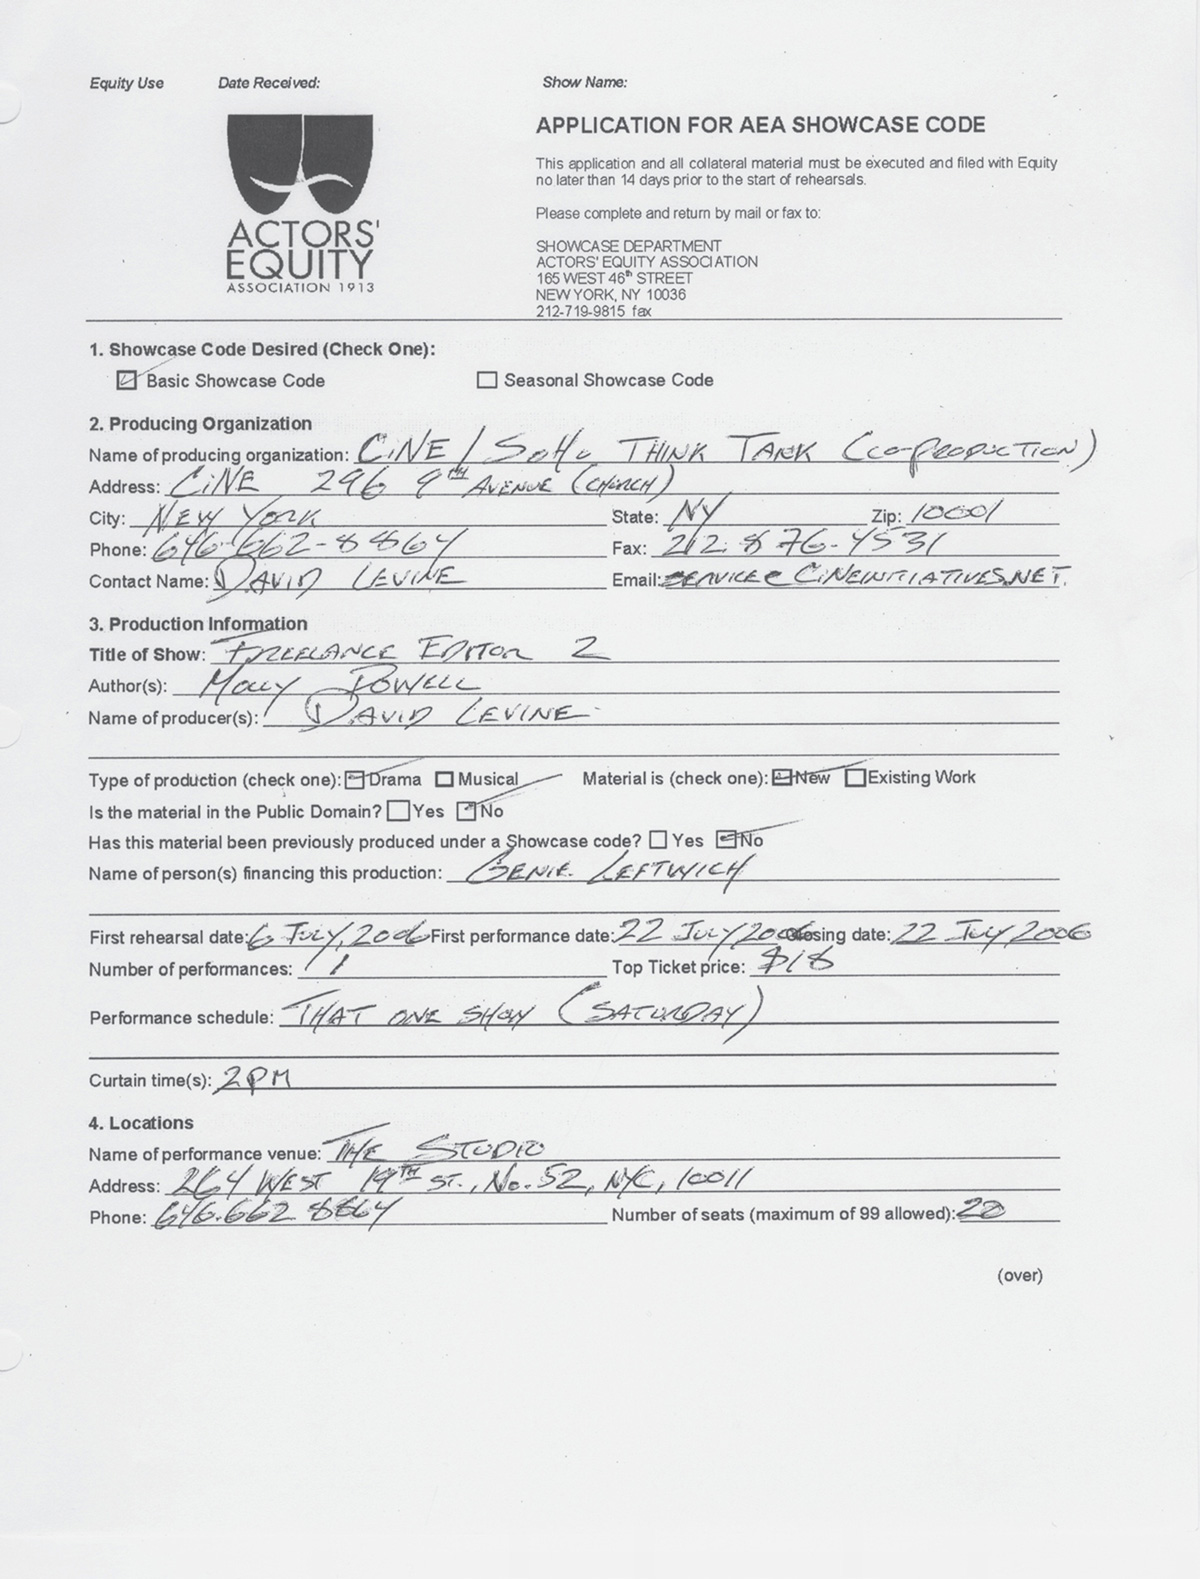 Equity Use Date Received: Show Name:
ACTORS'
EQUITY
ASSOCIATION 1913
APPLICATION FOR AEA SHOWCASE CODE
This application and all collateral material must be executed and filed with Equity
no later than 14 days prior to the start of rehearsals.
Please complete and return by mail or fax to:
SHOWCASE DEPARTMENT
ACTORS' EQUITY ASSOCIATION
165 WEST 46th STREET
NEW YORK, NY 10036
212-719-9815 fax
1. Showcase Code Desired (Check One):
Basic Showcase Code Seasonal Showcase Code
2. Producing Organization
Name of producing organization: CiNE / SoHo THINK TANK (CO-PRODUCTION)
Address: CiNE 296 9TH AVENUE (CHURCH)
City: NEW YORK State: NY Zip: 10001
Phone: 646-662-8864 Fax: 212.876-4531
Contact Name: DAVID LEVINE Email: SERVICE@CiNEINITIATIVES.NET.
3. Production Information
Title of Show: FREELANCE EDITOR 2
Author(s): MOLLY POWELL
Name of producer(s): DAVID LEVINE
Type of production (check one): Drama Musical Material is (check one): New Existing Work
Is the material in the Public Domain? Yes No
Has this material been previously produced under a Showcase code? Yes No
Name of person(s) financing this production: GENIE LEFTWICH
First rehearsal date: 6 JULY, 2006 First performance date: 22 JULY 2006 Closing date: 22 JULY 2006
Number of performances: 1 Top Ticket price: $18
Performance schedule: THAT ONE SHOW (SATURDAY)
Curtain time(s): 2PM
4. Locations
Name of performance venue: THE STUDIO
Address: 264 WEST 19TH ST., No. 52, NYC, 10011
Phone: 646.662 8864 Number of seats (maximum of 99 allowed): 20
(over)